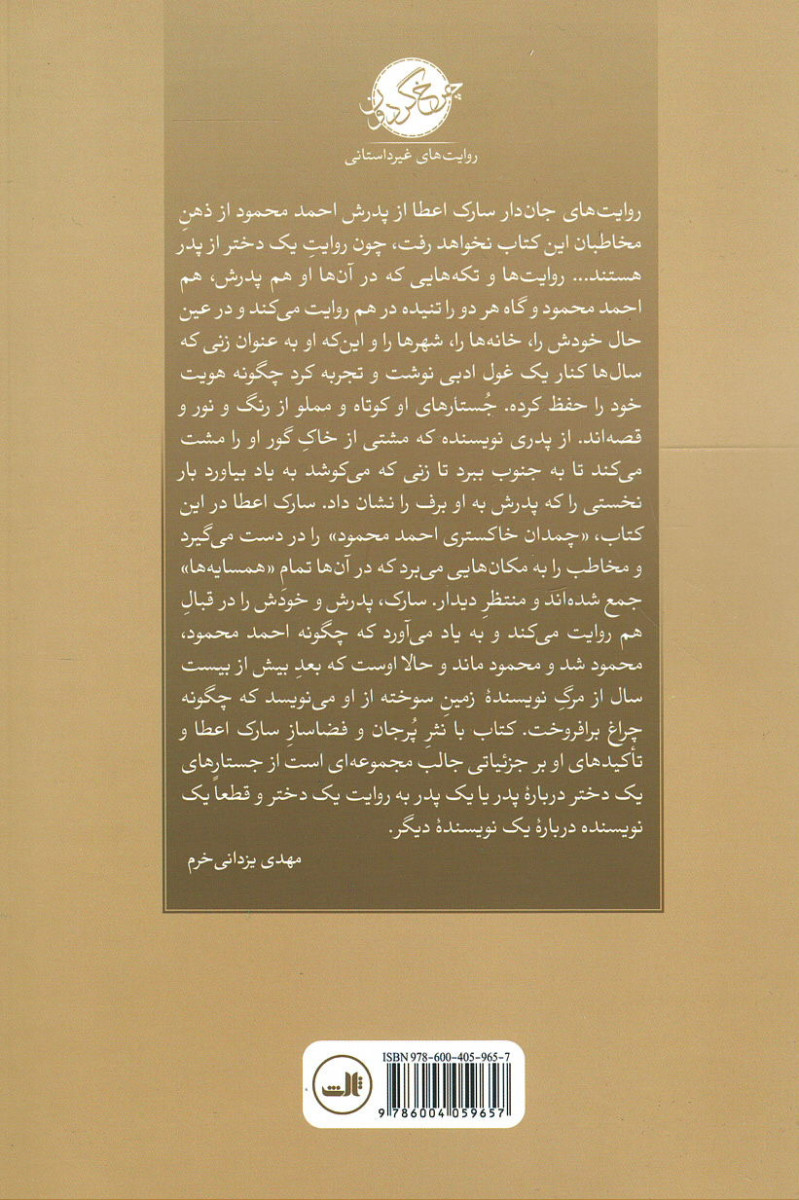 چرخ گردون
روایت‌های غیرداستانی
روایت‌های جان‌دار سارک اعطا از پدرش احمد محمود از ذهنِ
مخاطبان این کتاب نخواهد رفت، چون روایتِ یک دختر از پدر
هستند... روایت‌ها و تکه‌هایی که در آن‌ها او هم پدرش، هم
احمد محمود و گاه هر دو را تنیده در هم روایت می‌کند و در عین
حال خودش را، خانه‌ها را، شهرها را و این‌که او به عنوان زنی که
سال‌ها کنار یک غول ادبی نوشت و تجربه کرد چگونه هویت
خود را حفظ کرده. جُستارهای او کوتاه و مملو از رنگ و نور و
قصه‌اند. از پدری نویسنده که مشتی از خاکِ گور او را مشت
می‌کند تا به جنوب ببرد تا زنی که می‌کوشد به یاد بیاورد بار
نخستی را که پدرش به او برف را نشان داد. سارک اعطا در این
کتاب، «چمدان خاکستری احمد محمود» را در دست می‌گیرد
و مخاطب را به مکان‌هایی می‌برد که در آن‌ها تمامِ «همسایه‌ها»
جمع شده‌اند و منتظرِ دیدار. سارک، پدرش و خودش را در قبالِ
هم روایت می‌کند و به یاد می‌آورد که چگونه احمد محمود،
محمود شد و محمود ماند و حالا اوست که بعدِ بیش از بیست
سال از مرگِ نویسندهٔ زمینِ سوخته از او می‌نویسد که چگونه
چراغ برافروخت. کتاب با نثرِ پُرجان و فضاسازِ سارک اعطا و
تأکیدهای او بر جزئیاتی جالب مجموعه‌ای است از جستارهای
یک دختر دربارهٔ پدر یا یک پدر به روایت یک دختر و قطعاً یک
نویسنده دربارهٔ یک نویسندهٔ دیگر.
مهدی یزدانی‌خرم
ISBN 978-600-405-965-7
ثالث
9 786004 059657